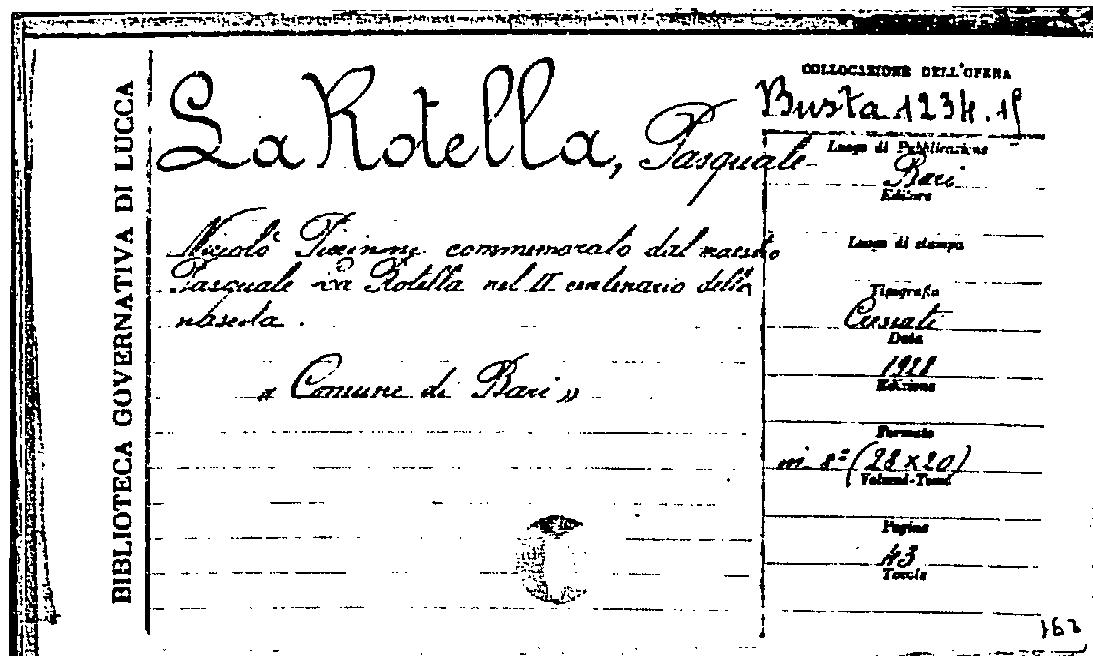 BIBLIOTECA GOVERNATIVA DI LUCCA
La Rotella, Pasquale
Niccolò Piccinni commemorato dal maestro
Pasquale La Rotella nel II centenario della
nascita.
« Comune di Bari »
COLLOCAZIONE DELL'OPERA
Busta 1234.15
Luogo di Pubblicazione
Bari
Editore
Luogo di stampa
Tipografia
Cressati
Data
1928
Edizione
Formato
in 8º (28 x 20)
Volumi-Tomi
Pagine
43
Tavole